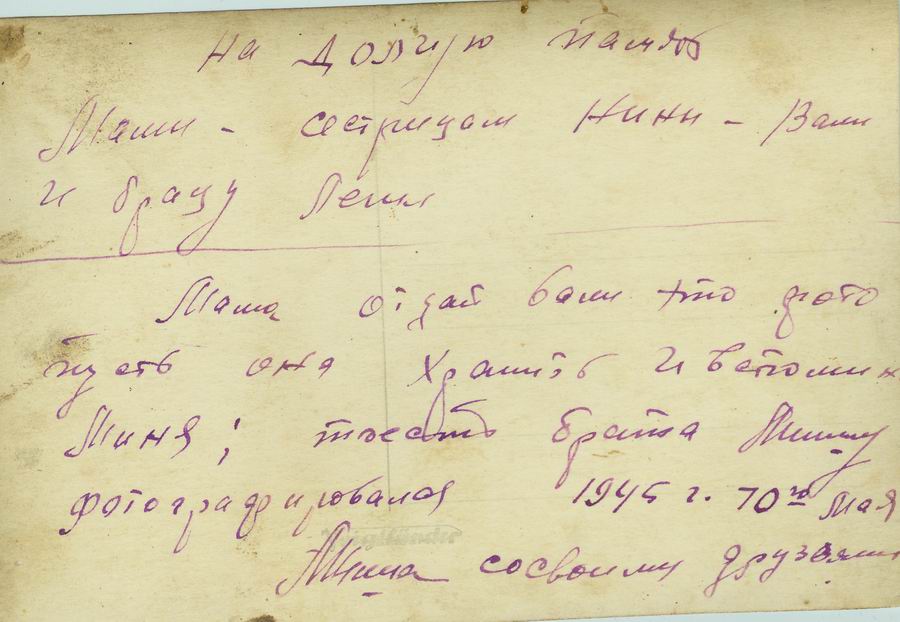 на долгую память
Маши - сестрицам Нины - Вали
и брацу Лени
Маша отдай вали это фото
пусть оня хранить и вспомин
Миня; тоесть брата Мишу
фотографировался 1945 г. 10го мая
Миша сосвоими друзьями